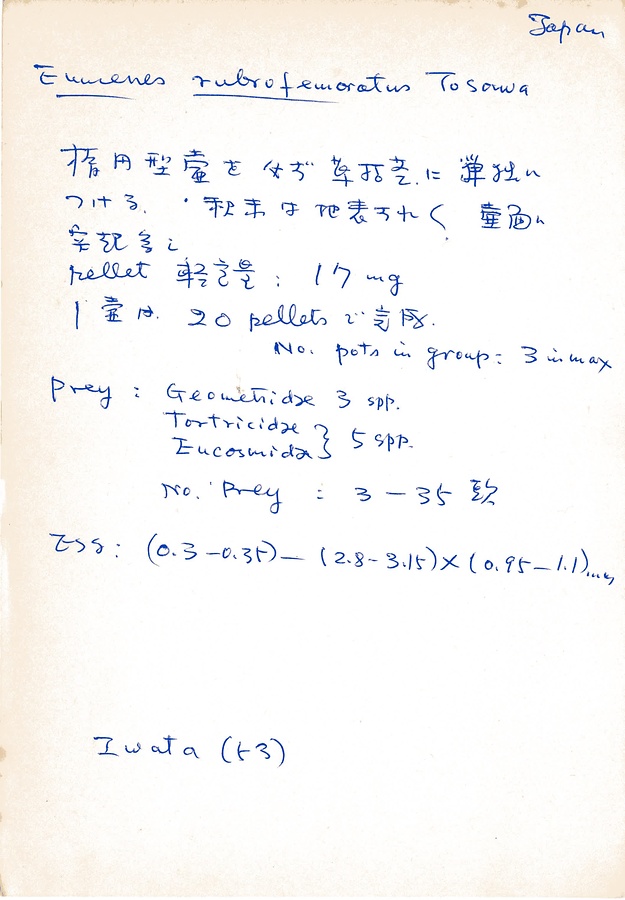 Japan
Eumenes rubrofemoratus Tosawa
楕円型壷を必ず草括茎に単独に
つける. ・秋末は地表ちかく 壷面に
突起多し
pellet 軽量 : 17 mg
1壷は. 20 pelletsで完成.
No. pots in group : 3 in max
Prey : Geometridae 3 spp.
Tortricidae
Eucosmidae } 5 spp.
No. Prey : 3 – 35 頭
Egg : (0.3 – 0.35) – (2.8 – 3.15) × (0.95 – 1.1) mm
Iwata (53)